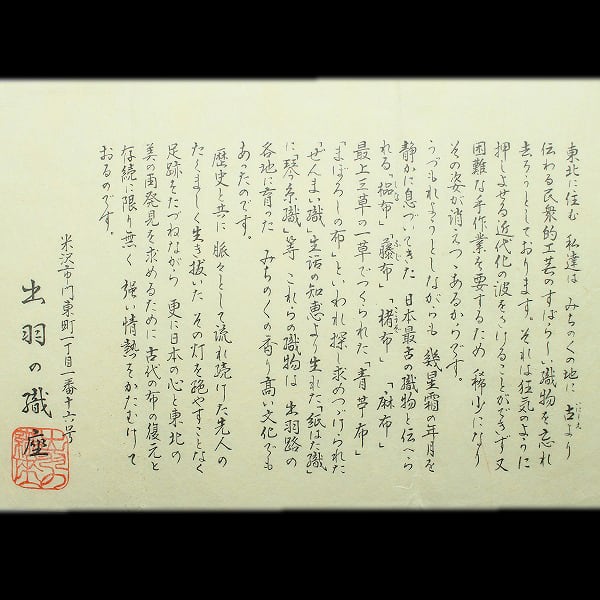 東北に住む 私達は みちのくの地に 古より
いにしえ
伝わる民衆的工芸のすばらしい織物を忘れ
去ろうとしております。それは狂気のように
押しよせる近代化の波をさけることができず又
困難な手作業を要するため 稀少になり
その姿が消えつゝあるからです。
うづもれようとしながらも 幾星霜の年月を
静かに息づいてきた 日本最古の織物と伝へら
れる「科布」「藤布」「楮布」「麻布」
しな ふじ こうぞ
最上三草の一草でつくられた「青苧布」
「まぼろしの布」といわれ探し求めつづけられた
「ぜんまい織」生活の知恵より生れた「紙はた織」
に「琴糸織」等 これらの織物は 出羽路の
各地に育った みちのくの香り高い文化でも
あったのです。
歴史と共に 脈々として流れ続けた先人の
たくましく生き抜いた その灯を絶やすことなく
足跡をたづねながら 更に日本の心と東北の
美の再発見を求めるために 古代の布の復元と
存続に限り無く 強い情熱をかたむけて
おるのです。
米沢市門東町一丁目一番十六号
出羽の織座